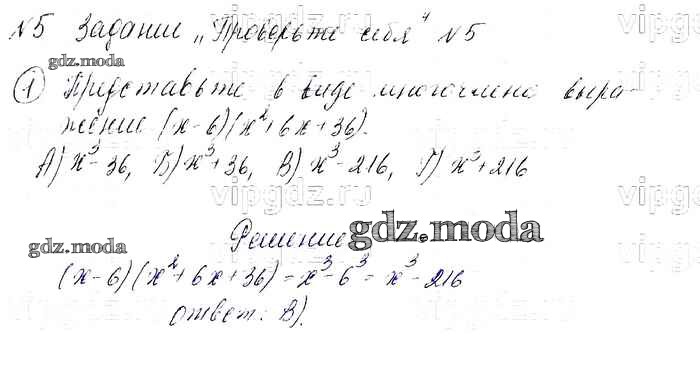 №5 Задании „Проверьте себя“ №5
① Представьте в виде многочлена выра-
жение (x-6)(x²+6x+36).
А) x³-36, Б) x³+36, В) x³-216, Г) x³+216
Решение
(x-6)(x²+6x+36)=x³-6³=x³-216
ответ: В).
gdz.moda
gdz.moda
gdz.moda
gdz.moda
vipgdz.ru
vipgdz.ru
vipgdz.ru
vipgdz.ru